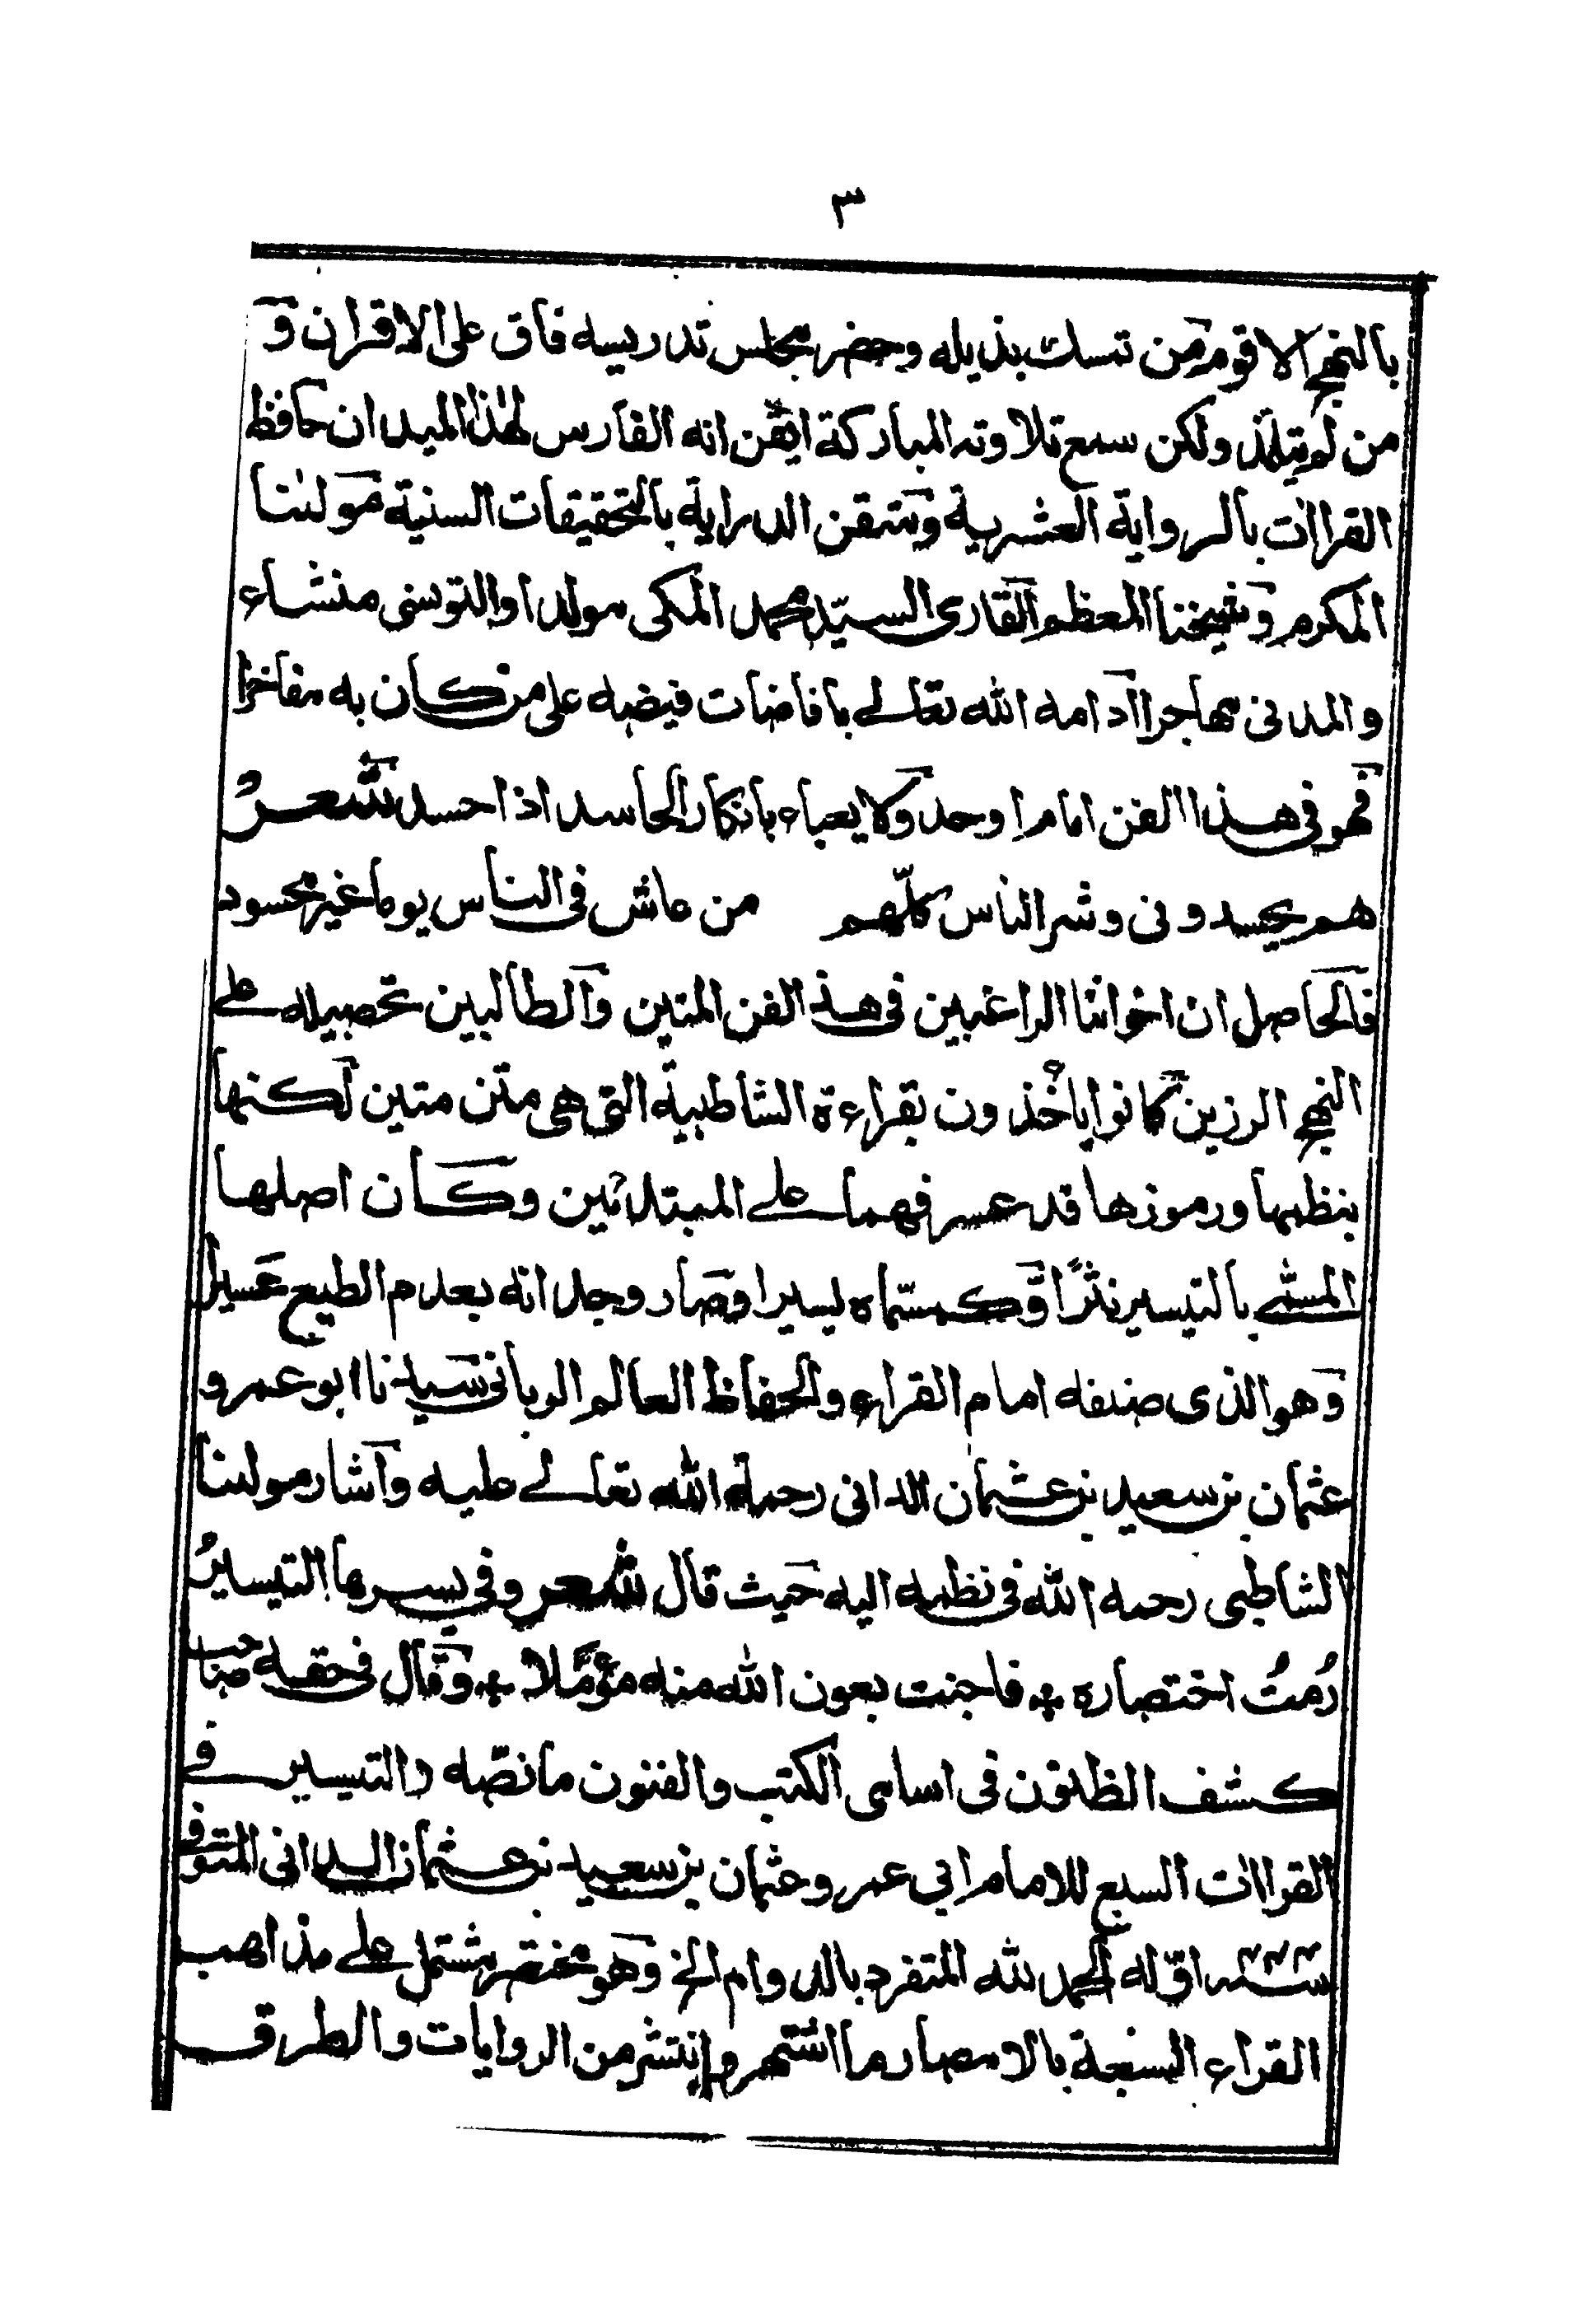 ٣
بالنهج الاقوم من تمسك بذيله وحضر مجلس تدريسه فاق على الاقران و
من لم يتلمذ ولكن سمع تلاوته المباركة ايقن انه الفارس لهذا الميدان حافظ
القراات بالرواية العشرية ومتقن الدراية بالتحقيقات السنية مولٰنا
المكرم وشيخنا المعظم القارى السيّد محمد المكى مولدا والتونسى منشاء
والمدنى مهاجرا ادامه الله تعالى بافاضات فيضه على من كان به مفاخرا
فهو فى هذا الفن امام اوحد ولا يعباء بانكار الحاسد اذا حسد شعرٌ
هم يحسدونى وشر الناس كلّهم من عاش فى الناس يوما غير محسود
فالحاصل ان اخواننا الراغبين فى هذ الفن المتين والطالبين تحصيله على
النهج الرزين كانوا ياخذون بقراءة الشاطبية التى هى متن متين لكنها
بنظمها ورموزها قد عسر فهمها على المبتدئين وكان اصلها
المسمى بالتيسير نثرًا وكمسمّاه يسيرا وصار وجدانه بعدم الطبع عسيرا
وهو الذى صنفه امام القراء والحفاظ العالم الربانى سيدنا ابو عمرو
عثمان بن سعيد بن عثمان الدانى رحمة الله تعالى عليه واشار مولٰنا
الشاطبى رحمه الله فى نظمه اليه حيث قال شعر وفي يسرها التيسيرُ
رُمتُ اختصاره ٭ فاجنت بعون الله منه مؤمّلا ٭ وقال فى حقه صاحب
كشف الظنون فى اسامى الكتب والفنون ما نصّه والتيسير فى
القراات السبع للامام ابي عمرو عثمان بن سعيد بن عثمان الدانى المتوفى
اوّله الحمد لله المتفرد بالدوام الخ وهو مختصر مشتمل على مذاهب
القراء السبعة بالامصار ما اشتهر وانتشر من الروايات والطرق